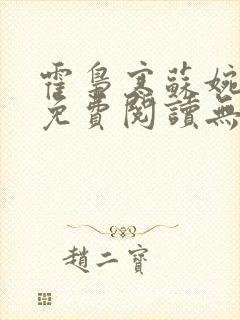 霍梟寒蘇婉
免費閱讀無
趙二寶